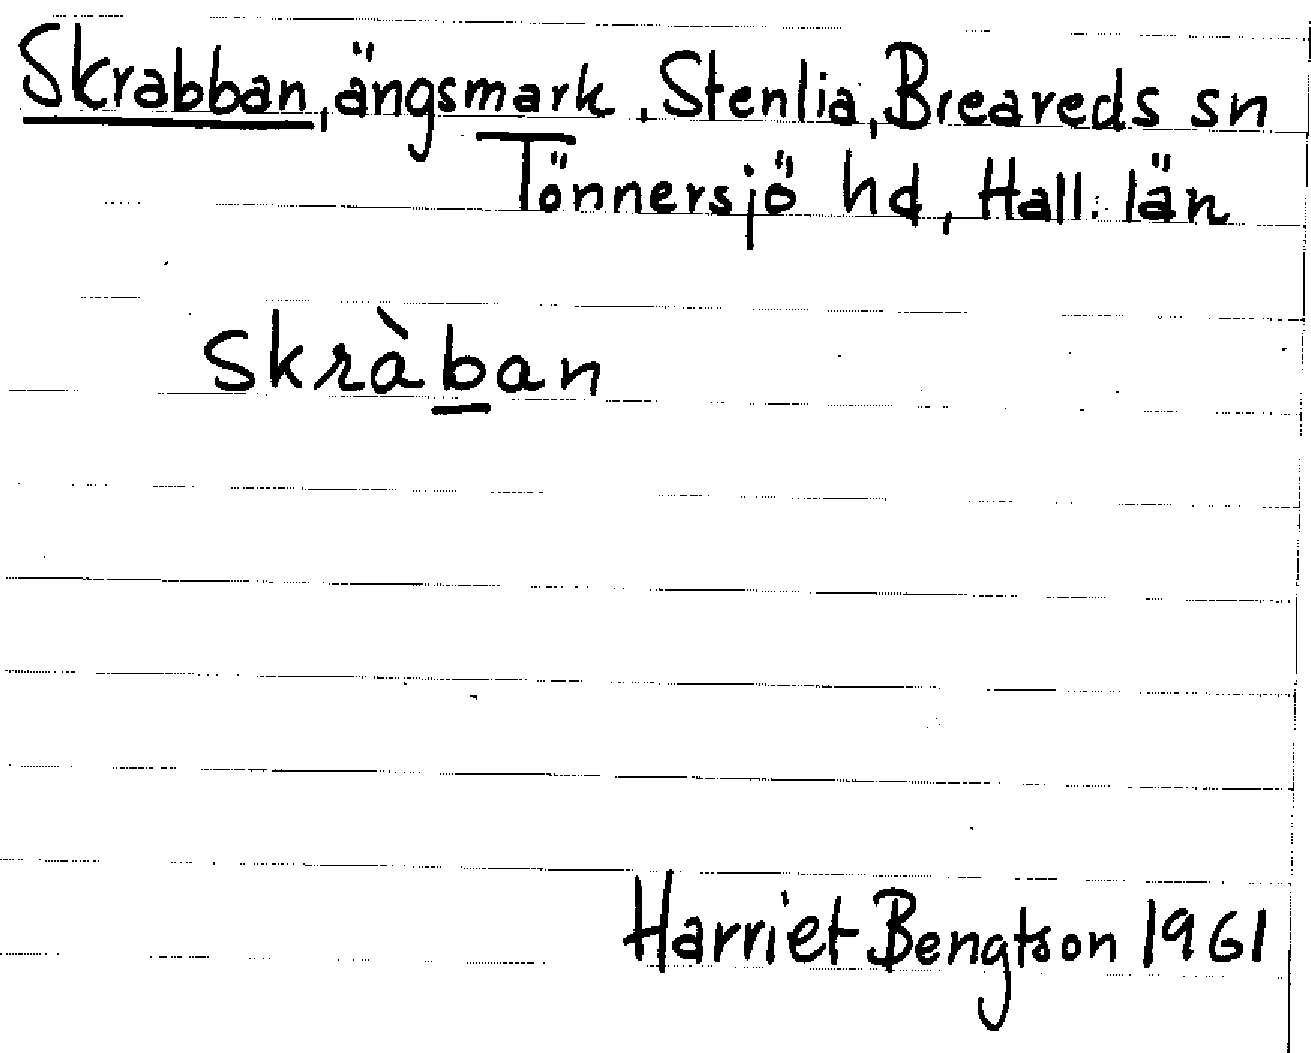 Skrabban, ängsmark, Stenlia, Breareds sn
Tönnersjö hd, Hall. län
skràban
Harriet Bengtson 1961